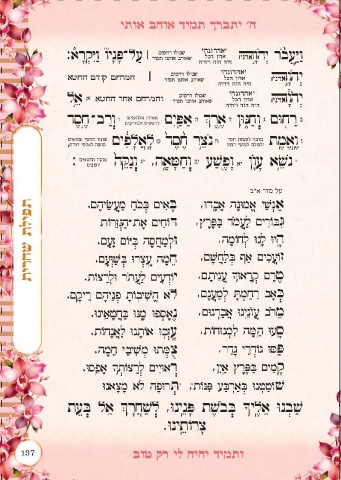 ה' יתברך תמיד אוהב אותי
וַיַּעֲבֹר יְהֹוָה עַל־פָּנָיו וַיִּקְרָא:
יְהֹוָה
יְהֹוָה אֵל
רַחוּם וְחַנּוּן אֶרֶךְ אַפַּיִם וְרַב־חֶסֶד
וֶאֱמֶת נֹצֵר חֶסֶד לָאֲלָפִים
נֹשֵׂא עָוֹן וָפֶשַׁע וְחַטָּאָה, וְנַקֵּה:
אַנְשֵׁי אֱמוּנָה אָבָדוּ, בָּאִים בְּכֹחַ מַעֲשֵׂיהֶם.
גִּבּוֹרִים לַעֲמֹד בַּפֶּרֶץ, דּוֹחִים אֶת־הַגְּזֵרוֹת
הָיוּ לָנוּ לְחוֹמָה, וּלְמַחְסֶה בְּיוֹם זָעַם.
זוֹעֲכִים אַף בְּלַחֲשָׁם, חֵמָה עָצְרוּ בְּשַׁוְּעָם.
טֶרֶם קְרָאוּךָ עֲנִיתָם, יוֹדְעִים לַעֲתֹר וּלְרַצּוֹת.
כְּאָב רִחַמְתָּ לְמַעֲנָם, לֹא הֱשִׁיבוֹתָ פְּנֵיהֶם רֵיקָם.
מֵרֹב עֲוֹנֵינוּ אֲבַדְנוּם, נֶאֶסְפוּ מֶנּוּ בַּחֲטָאֵינוּ.
סָעוּ הֵמָּה לִמְנוּחוֹת, עָזְבוּ אוֹתָנוּ לַאֲנָחוֹת.
פַּסּוּ גוֹדְרֵי גָדֵר, צֻמְּתוּ מְשִׁיבֵי חֵמָה.
קָמִים בַּפֶּרֶץ אַיִן, רְאוּיִים לְרַצּוֹתְךָ אָפֵסוּ.
שׁוֹטַטְנוּ בְּאַרְבַּע פִּנּוֹת, תְּרוּפָה לֹא מָצָאנוּ.
שַׁבְנוּ אֵלֶיךָ בְּבֹשֶׁת פָּנֵינוּ, לְשַׁחֲרָךְ אֵל בְּעֵת
צָרוֹתֵינוּ.
תפילת שחרית
137
ותמיד יהיה לי רק טוב